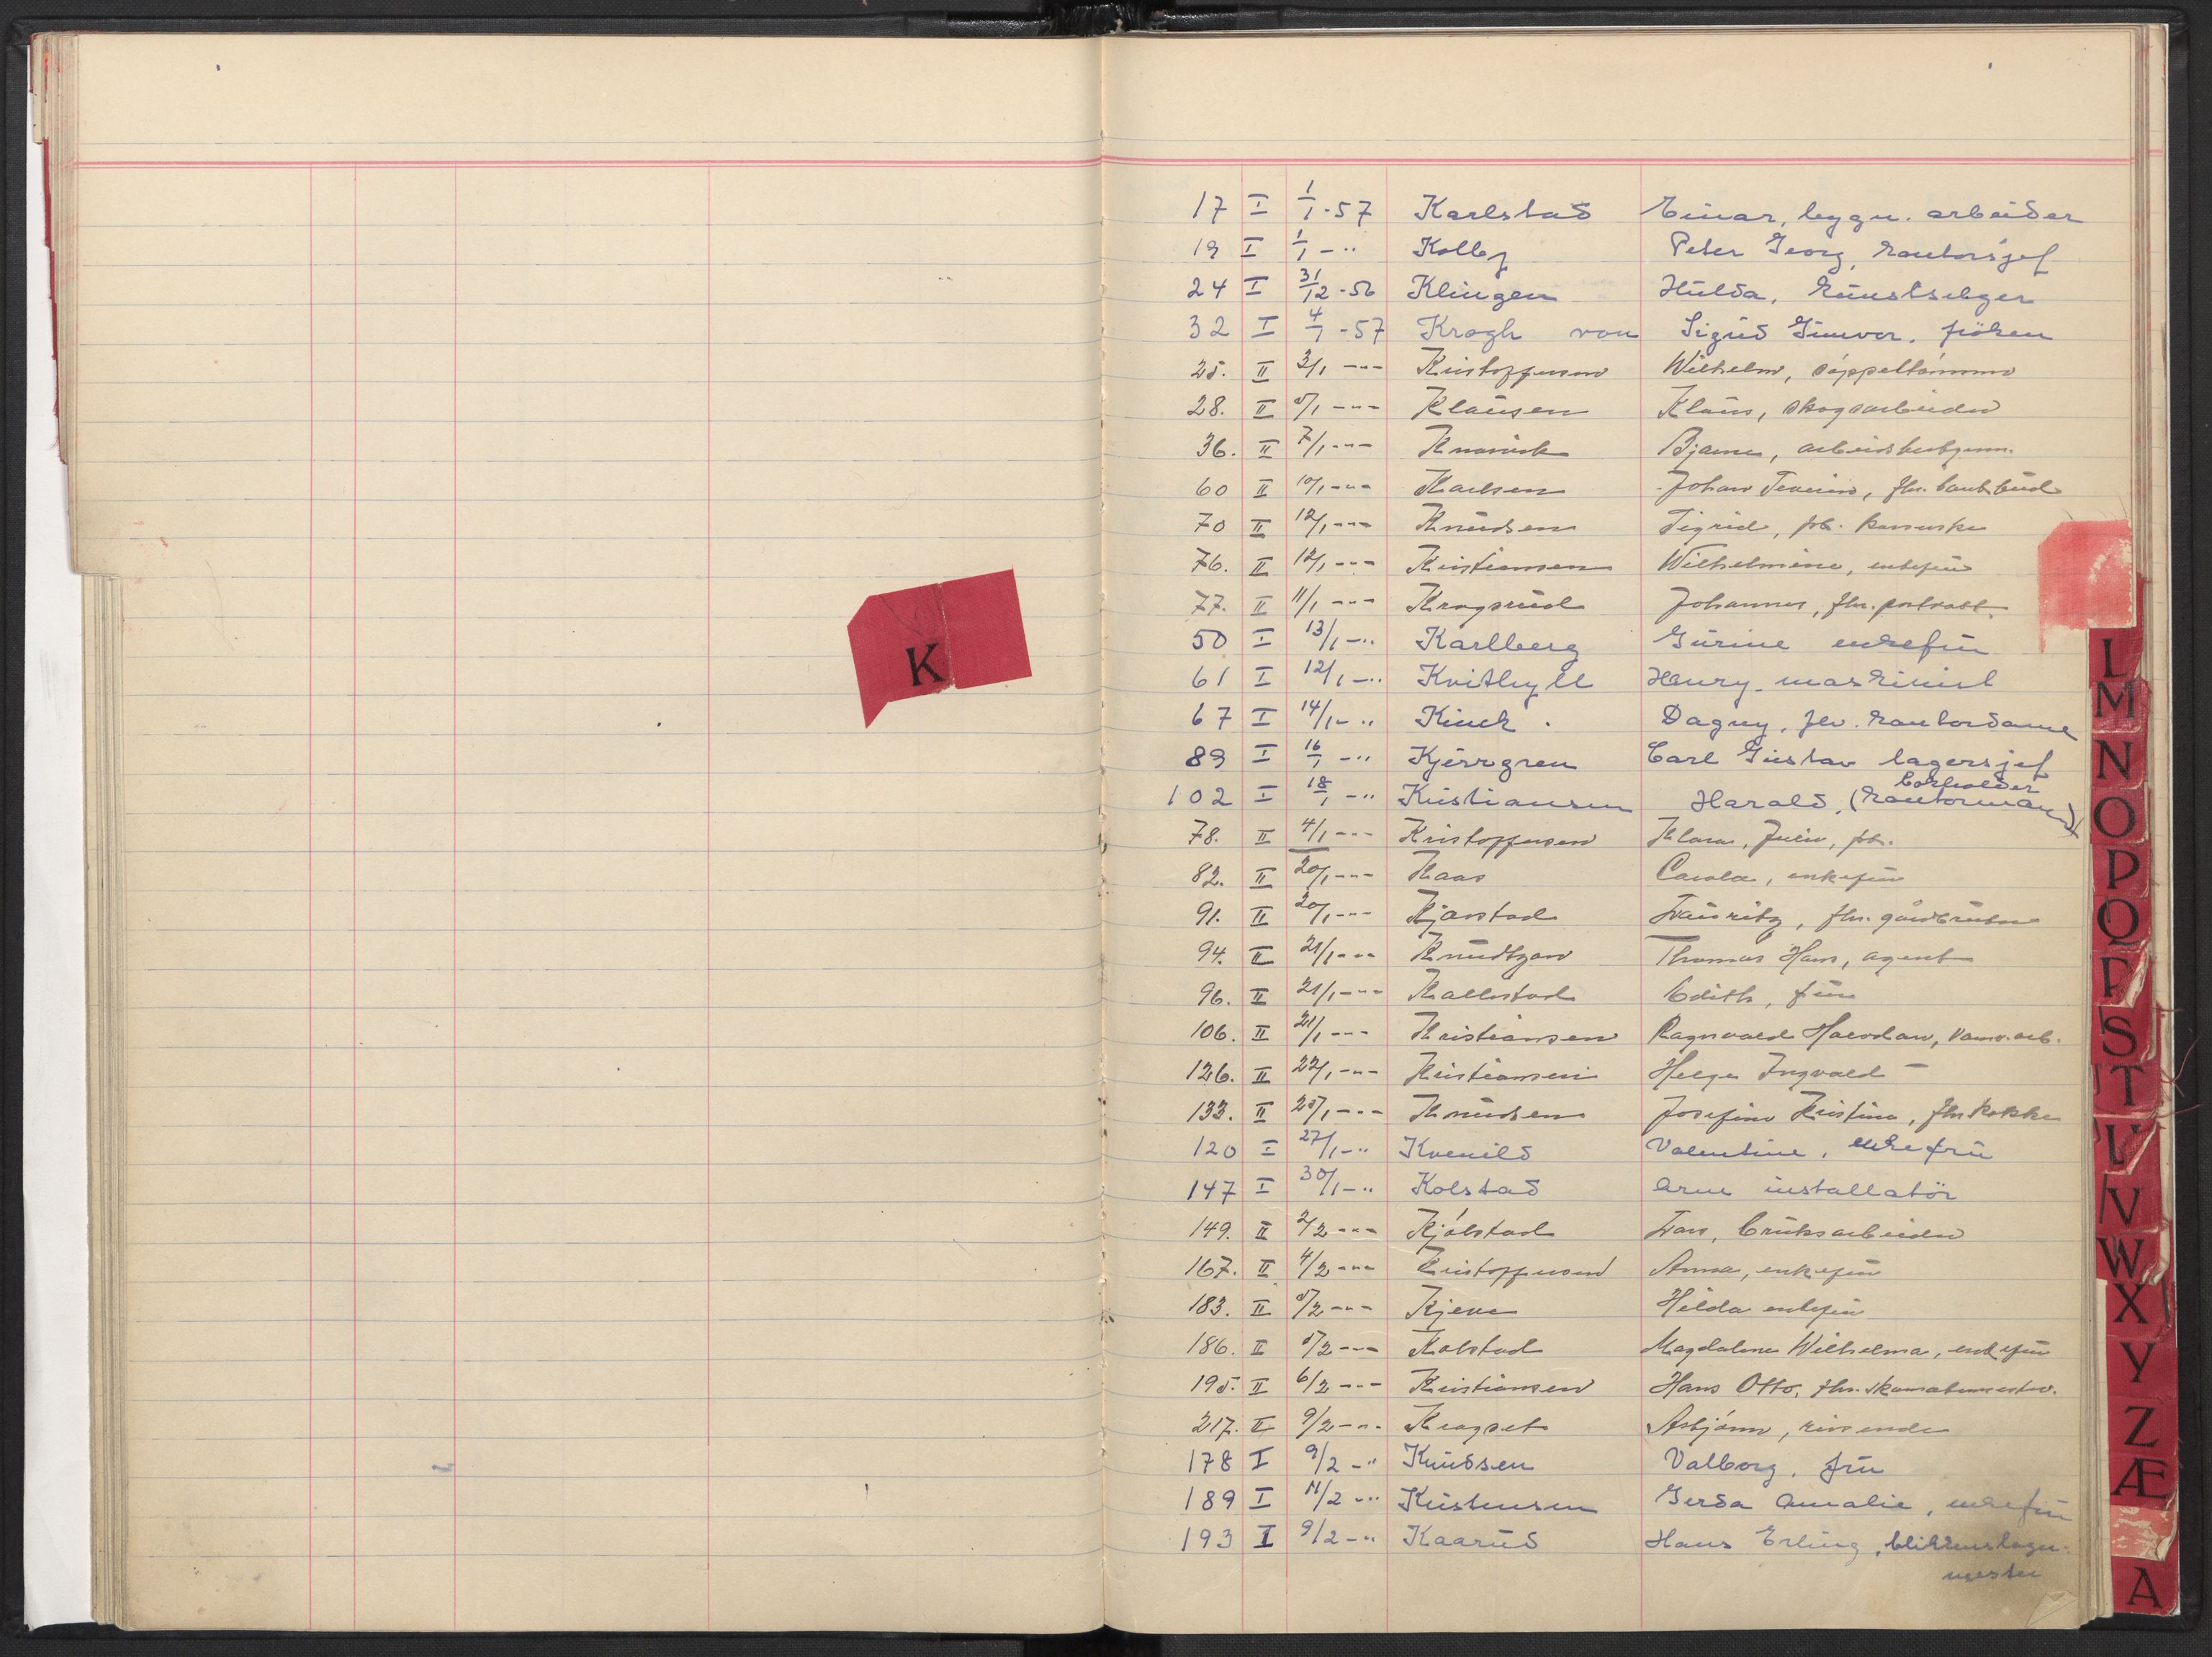 K
17 I 1/1-57 Karlstad Einar, bygn. arbeider
19 I 1/1 - " Kolby Peter Georg, kontorsjef
24 I 31/12-56 Klingen Hulda, kunstselger
32 I 4/1-57 Krogh von Sigrid Gunvor, fröken
25. II 3/1 -"- Kristoffersen Wilhelm, söppeltömmer
28. II 5/1 -"- Klausen Klaus, skogsarbeider
36. II 7/1 -"- Bjarne,
60 II 10/1 -"- Karlsen Johan fhv. bankbud
70 II 12/1 -"- Knudsen Sigrid, frk.
76. II 12/1 -"- Kristiansen Wilhelmine, enkefru
77. II 11/1 -"- Krogsrud Johannes, fhv.
50 I 13/1 - " Karlberg Gurine enkefru
61 I 12/1 - " Kvithyll Henry, maskinist
67 I 14/1 - " Kinck Dagny, fhv. kontordame
89 I 16/1 - " Kjerrgren Carl Gustav lagersjef
102 I 18/1 - " Kristiansen Harald, (kontormann) bokholder
78. II 4/1 -"- Kristoffersen Klara, Julie, frk.
82. II 20/1 -"- Kaas Carola, enkefru
91. II 20/1 -"- Kjarstad Lauritz, fhv. gårdbruker
94. II 21/1 -"- Knudtzon Thomas Hans, agent
96. II 21/1 -"- Kallestad Edith, fru
106. II 21/1 -"- Kristiansen Ragnvald Halvdan,
126. II 22/1 -"- Kristiansen Helge Ingvald -
133. II 25/1 -"- Knudsen Josefine Kristine, fhv. kokke
120 I 27/1 - " Kvenild Valentine, enkefru
147 I 30/1 - " Kolstad Arne installatör
149. II 2/2 -"- Kjölstad Lars, bruksarbeider
167. II 4/2 -"- Kristoffersen Anna, enkefru
183. II 5/2 -"- Hilda enkefru
186. II 5/2 -"- Kolstad Magdalene Wilhelma, enkefru
195. II 6/2 -"- Kristiansen Hans Otto, fhv. skomakermester.
217. II 9/2 -"- Krogset Asbjörn, reisende
178 I 9/2 - " Knudsen Valborg, fru
189 I 11/2 - " Kristensen Gerda Amalie, enkefru
193 I 9/2 - " Kaarud Hans Erling, blikkenslager-
mester
L
M
N
O
P
Q
R
S
T
U
V
W
X
Y
Z
Æ
A